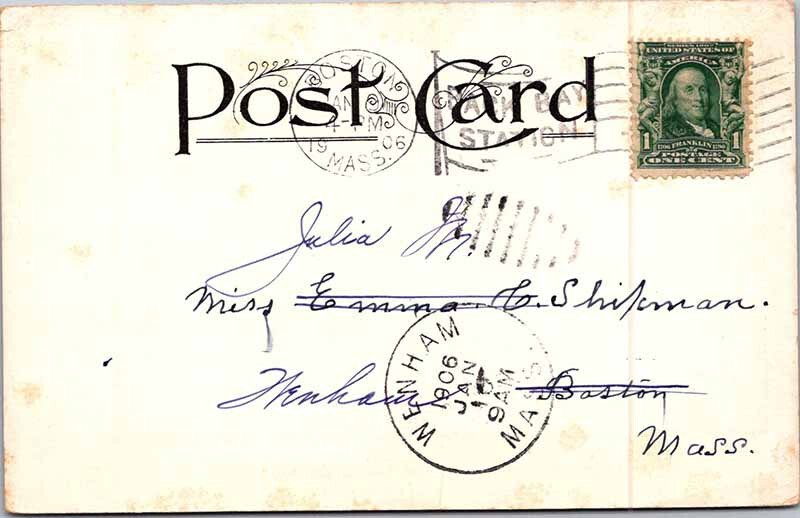 Post Card
BOSTON
JAN
4-PM
19 06
MASS.
BACK BAY
STATION
SERIES 1902
UNITED STATES OF
AMERICA
1706 FRANKLIN 1790
POSTAGE
1 ONE CENT 1
Julia M.
Miss Emma C. Shipman.
Wenham Boston
Mass.
WENHAM
1906
JAN
9AM
MASS